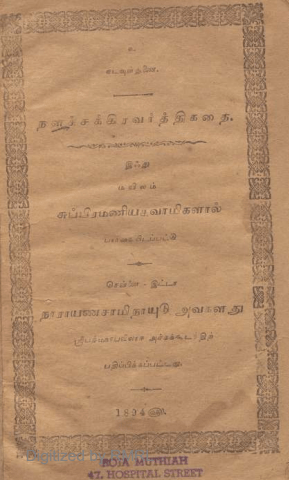 உ
கடவுள்துணை.
நளச்சக்கிரவர்த்திகதை.
இஃது
மயிலம்
சுப்பிரமணியசுவாமிகளால்
பார்வையிடப்பட்டு
சென்னை - இட்டா
நாராயணசாமிநாயுடு அவர்களது
அச்சுக்கூடத்திற்
பதிப்பிக்கப்பட்டது.
1894
ROJA MUTHIAH
47, HOSPITAL STREET